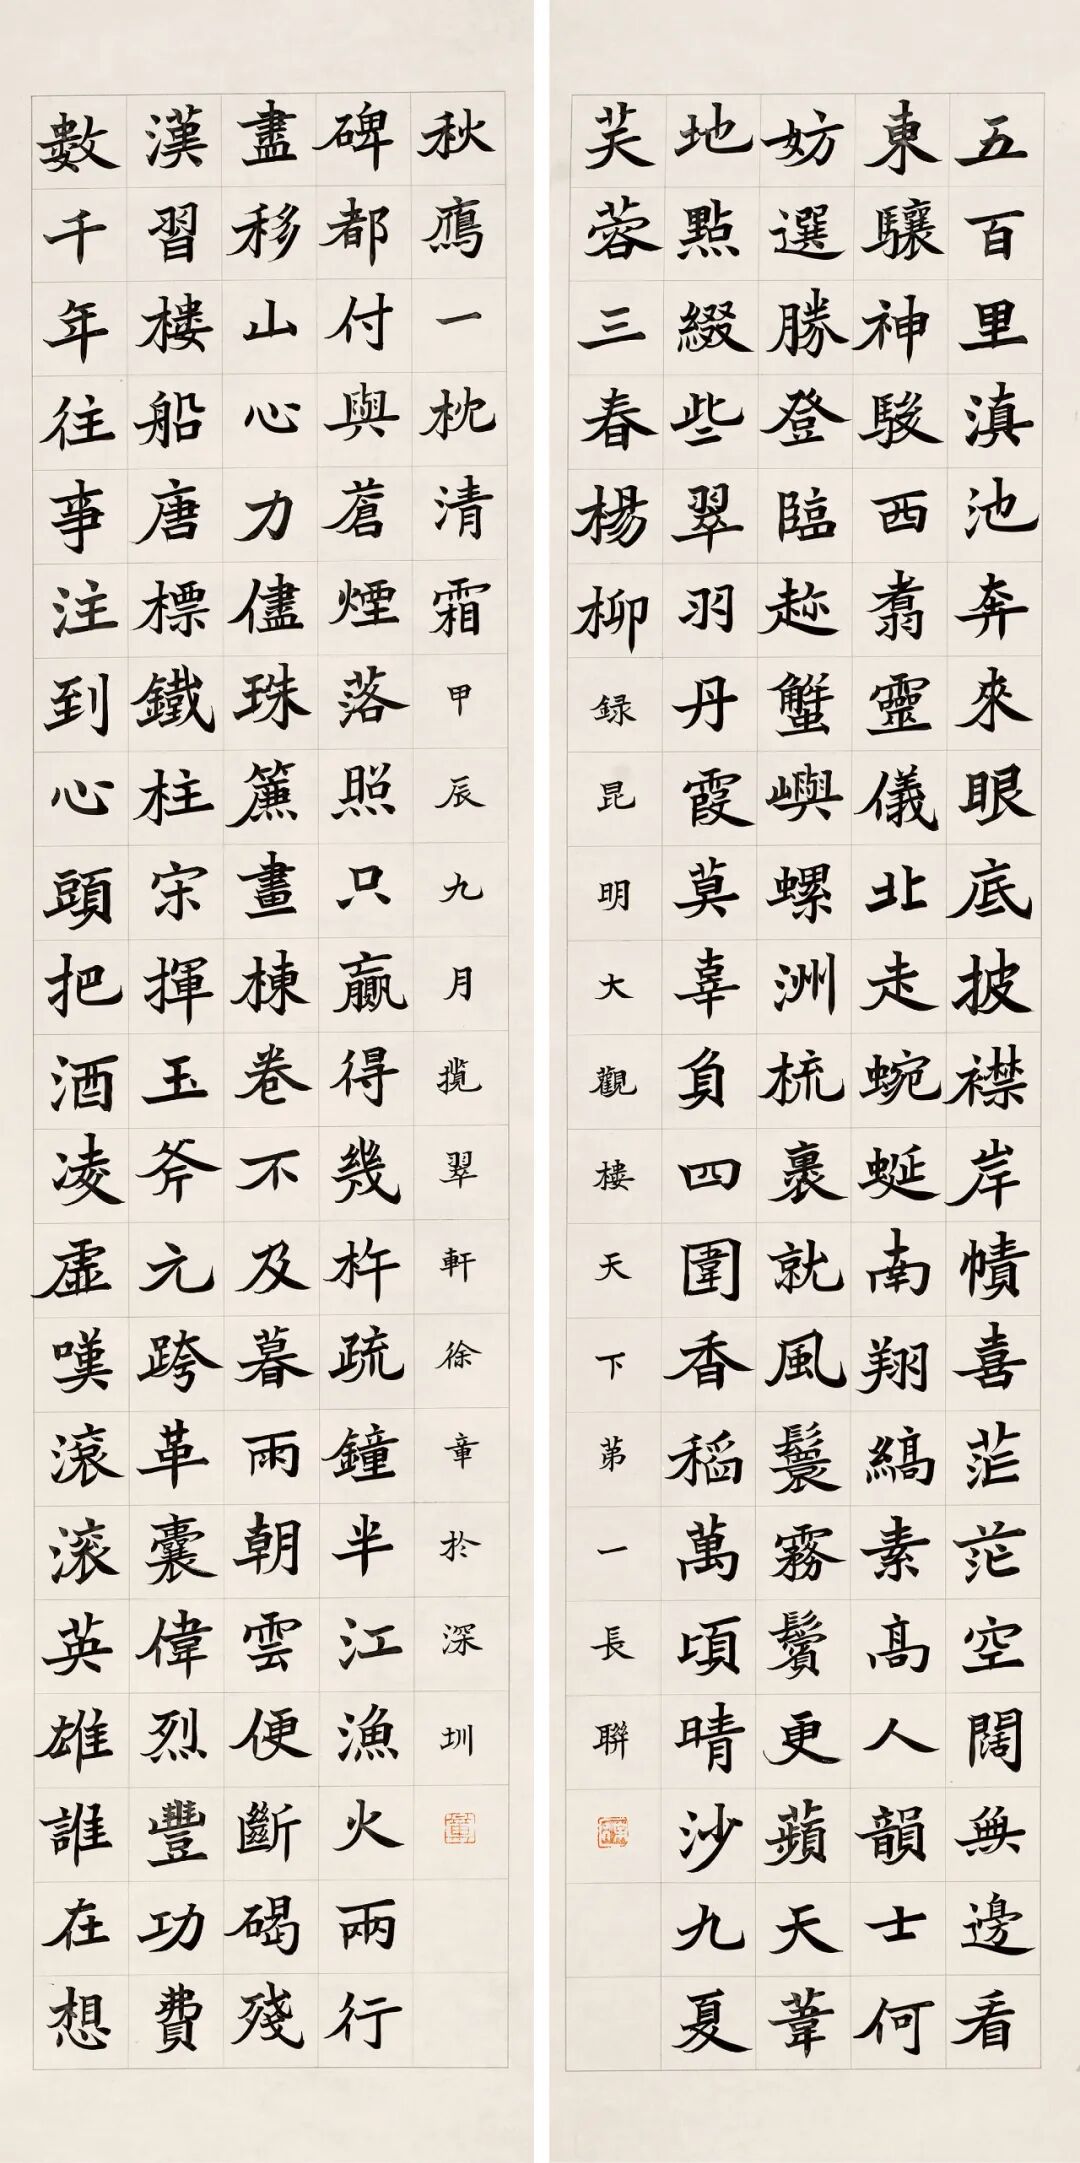 五百里滇池奔來眼底披襟岸幘喜茫茫空闊無邊看
東驤神駿西翥靈儀北走蜿蜒南翔縞素高人韻士何
妨選勝登臨趂蟹嶼螺洲梳裹就風鬟霧鬢更蘋天葦
地點綴些翠羽丹霞莫辜負四圍香稻萬頃晴沙九夏
芙蓉三春楊柳錄昆明大觀樓天下苐一長聯
數千年往事注到心頭把酒凌虛嘆滾滾英雄誰在想
漢習樓船唐標鐵柱宋揮玉斧元跨革囊偉烈豐功費
盡移山心力儘珠簾畫棟卷不及暮雨朝雲便斷碣殘
碑都付與蒼煙落照只贏得幾杵疏鐘半江漁火兩行
秋鴈一枕清霜甲辰九月攬翠軒徐章於深圳